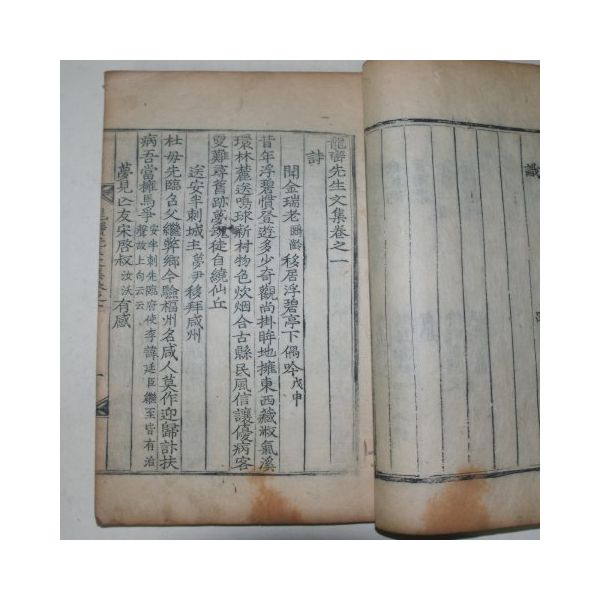 龍巒先生文集卷之一
詩
聞金瑞老移居浮碧亭下偶吟戊申
昔年浮碧慣登遊多少奇觀尚掛眸地擁東西藏淑氣溪
環林麓送鳴球新村物色炊烟合古縣民風信讓優病客
更難尋舊跡夢魂徒自繞仙丘
送安半刺城主夢尹移拜咸州
杜母先臨召父繼弊鄉今驗福州名咸人莫作迎歸計扶
病吾當擁馬爭安半刺先臨府使李諱廷臣繼至皆有治聲故上句云云
夢見亡友宋啓叔汝沃有感
識